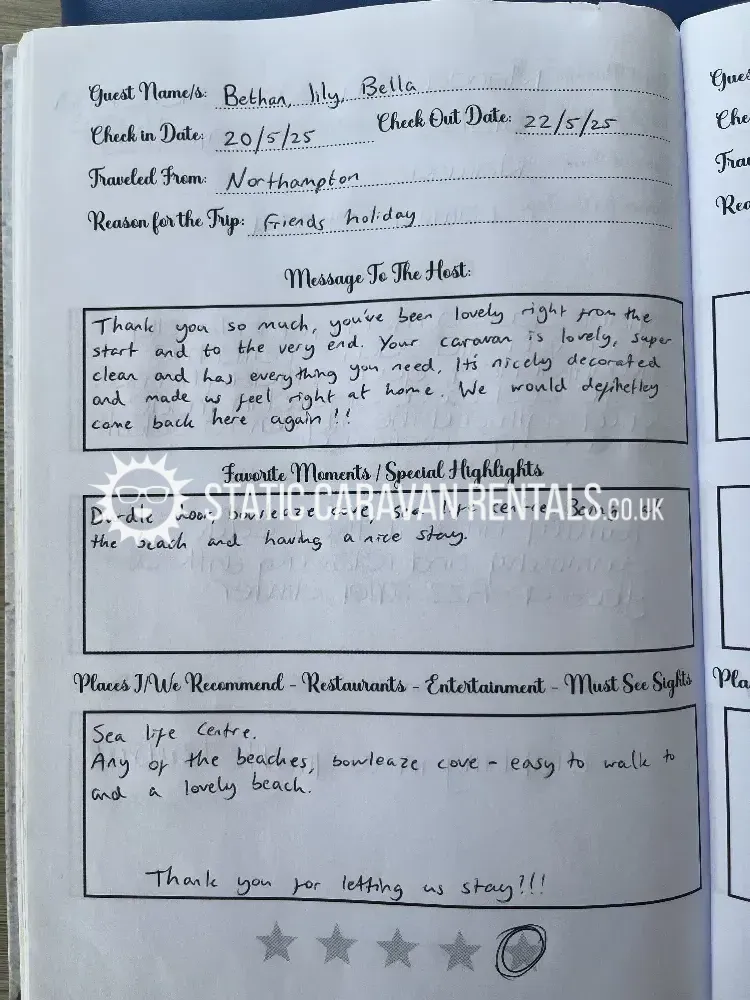 Guest Name/s: Bethan, lily, Bella
Check in Date: 20/5/25 Check Out Date: 22/5/25
Traveled From: Northampton
Reason for the Trip: Friends holiday
Message To The Host:
Thank you so much, you've been lovely right from the
start and to the very end. Your caravan is lovely, super
clean and has everything you need, It's nicely decorated
and made us feel right at home. We would definetley
come back here again!!
Favorite Moments / Special Highlights
STATIC CARAVAN RENTALS.CO.UK
Durdle door, bowleaze cove, sea life centre. Being
the beach and having a nice stay.
Places I/We Recommend - Restaurants - Entertainment - Must See Sights
Sea life Centre.
Any of the beaches, bowleaze cove - easy to walk to
and a lovely beach.
Thank you for letting us stay!!!
Gues
Che
Trav
Rea
Pla